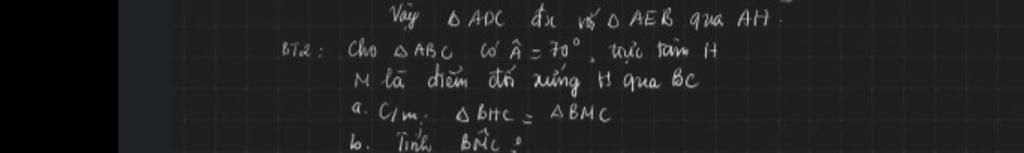 Vậy △ ADC đx với △ AEB qua AH.
BT2: Cho △ ABC có Â = 70°, trực tâm H
M là điểm đối xứng H qua BC
a. C/m: △ BHC = △ BMC
b. Tính BM̂C ?